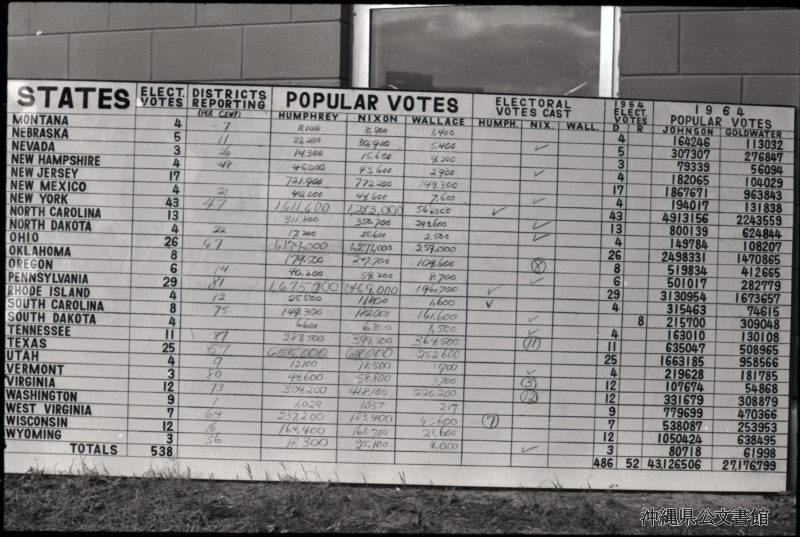 STATES ELECT. VOTES DISTRICTS REPORTING (PER CENT) POPULAR VOTES ELECTORAL VOTES CAST 1964 ELECT. VOTES 1964 POPULAR VOTES
HUMPHREY NIXON WALLACE HUMPH. NIX. WALL. D R JOHNSON GOLDWATER
MONTANA 4 7 8,800 1,400 4 164246 113032
NEBRASKA 5 11 22,200 30,900 5,400 ✓ 5 307307 276847
NEVADA 3 14,300 15,600 4,200 3 79339 56094
NEW HAMPSHIRE 4 48 45,000 43,600 2,900 ✓ 4 182065 104029
NEW JERSEY 17 721,900 772,200 149,300 17 1867671 963843
NEW MEXICO 4 21 40,000 44,600 7,600 ✓ 4 194017 131838
NEW YORK 43 47 1,611,600 1,283,000 ✓ 43 4913156 2243559
NORTH CAROLINA 13 311,800 350,700 293,600 ✓ 13 800139 624844
NORTH DAKOTA 4 22 17,200 25,600 2,500 ✓ 4 149784 108207
OHIO 26 67 1,179,000 259,000 26 2498331 1470865
OKLAHOMA 8 179,500 247,700 109,600 8 8 519834 412665
OREGON 6 14 40,200 59,200 8,700 ✓ 6 501017 282779
PENNSYLVANIA 29 81 1,675,700 1,469,000 196,700 ✓ 29 3130954 1673657
RHODE ISLAND 4 12 25,500 11,800 1,600 ✓ 4 315463 74615
SOUTH CAROLINA 8 75 149,300 182000 161,600 8 215700 309048
SOUTH DAKOTA 4 6600 6300 1,500 ✓ 4 163010 130108
TENNESSEE 11 87 289,500 399,300 364,500 11 11 635047 508965
TEXAS 25 57 655,000 618,000 252,600 25 1663185 958566
UTAH 4 9 12,100 18,500 1,900 ✓ 4 219628 181785
VERMONT 3 80 44,600 58,800 3,700 3 3 107674 54868
VIRGINIA 12 73 304,200 418,100 220,200 12 12 331679 308879
WASHINGTON 9 1 1,029 1037 217 9 779699 470366
WEST VIRGINIA 7 64 237,200 163,400 43,600 7 7 538087 253953
WISCONSIN 12 16 164,400 161,700 25,600 12 1050424 638495
WYOMING 3 36 18,300 25,100 4,000 ✓ 3 80718 61998
TOTALS 538 486 52 43,126506 27,176,799
沖縄県公文書館